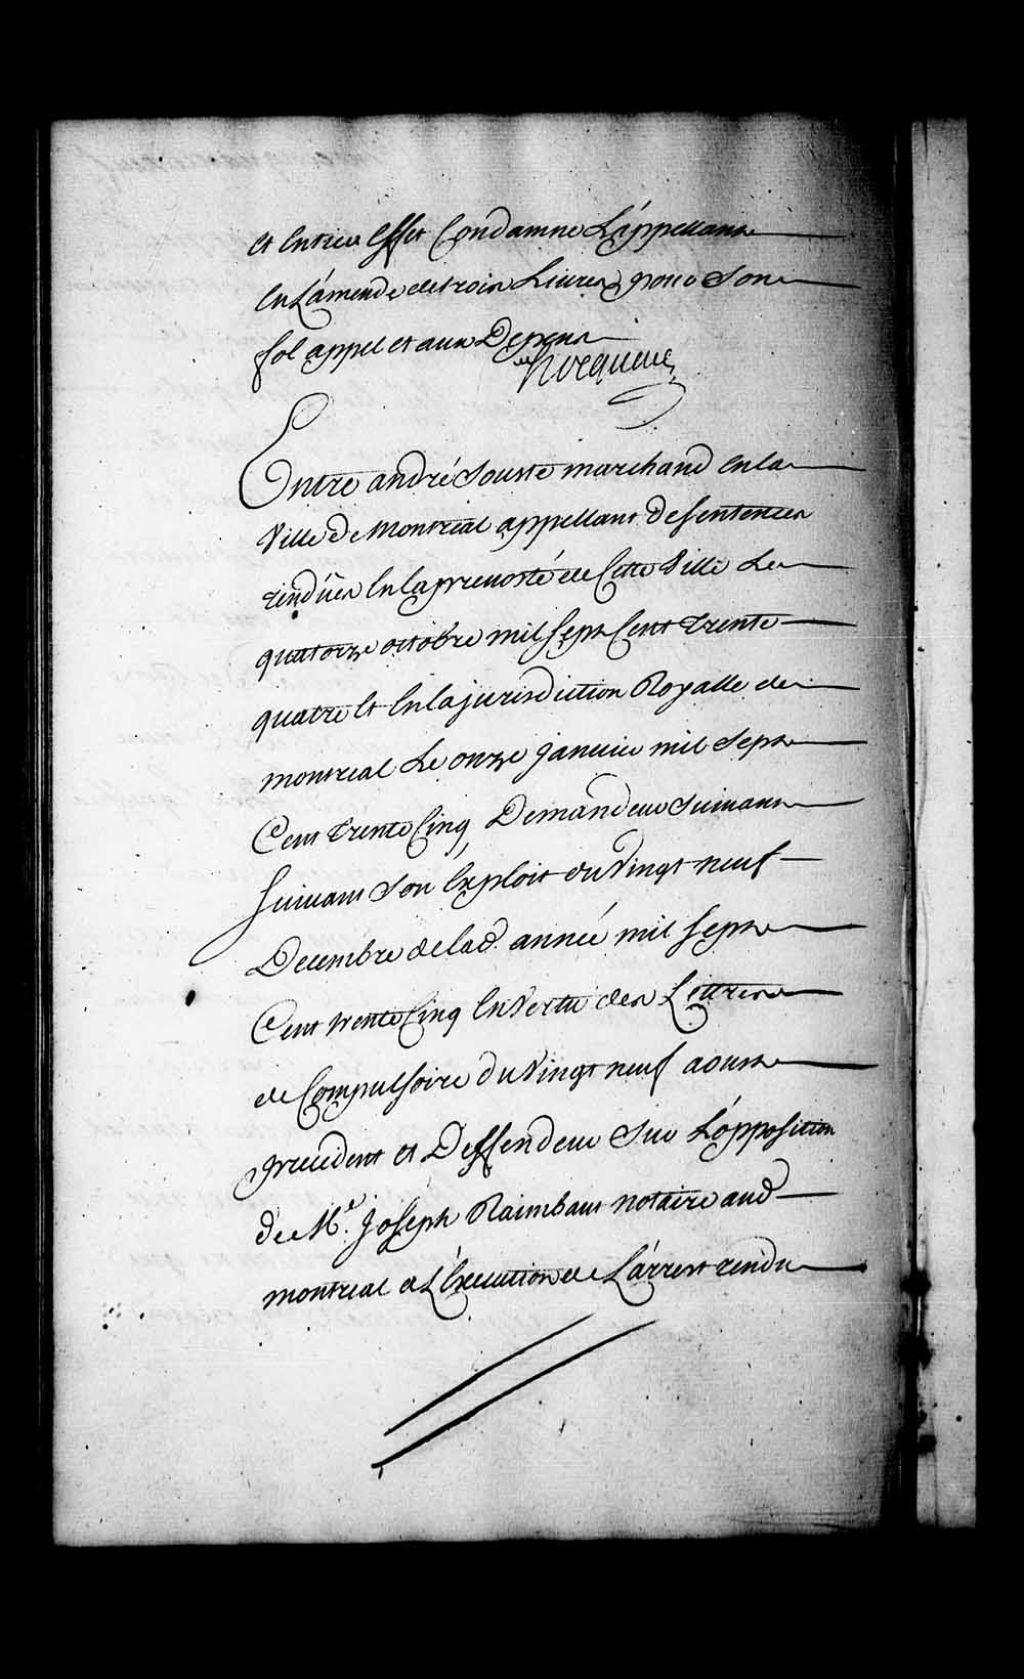 et entier effet Condamne L'appellant
en L'amende de trois Livres pour son
fol appel et aux Depens
hocquart
Entre andré Souste marchand en la
Ville de Montreal appellant de sentences
rendües en la prevosté de Cette Ville Le
quatorze octobre mil sept Cent trente
quatre et en la jurisdiction Royalle de
montreal Le onze janvier mil sept
Cent trente Cinq, Demandeur suivant
suivant son Exploit du Vingt neuf
Decembre de lad. année mil sept
Cent trente Cinq en Vertu des Lettres
de Compulsoire du Vingt neuf aoust
precedent et Deffendeur sur L'opposition
de Me. Joseph Raimbaut notaire aud
montreal a L'Execution de L'arrest rendu